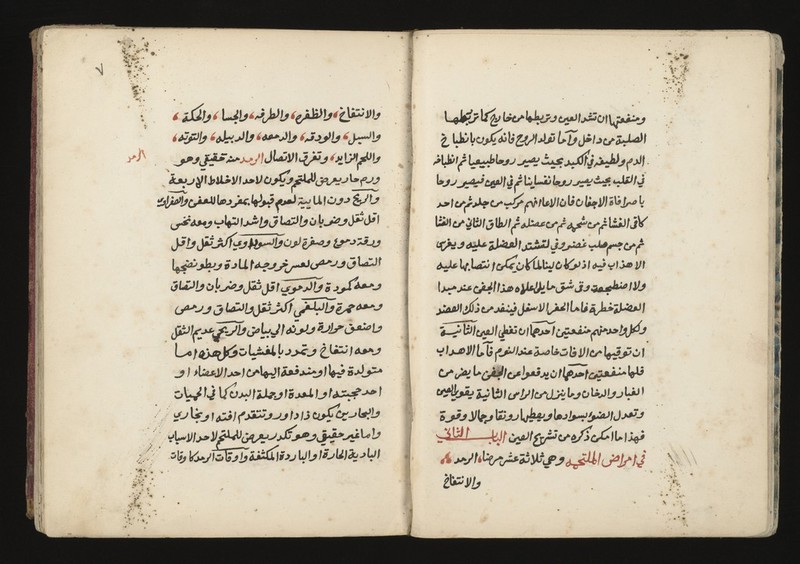 ومنفعتها ان تشد العين وتربطها من خارج كما تربطها
الصلبة من داخل واما تولد الروح فانه يكون بانطباخ
الدم ولطيفه في الكبد بحيث يصير روحا طبيعيا ثم انطباخه
في القلب بحيث يصير روحا نفسانيا ثم في العين فيصير روحا
باصرا فاة الاجفان فان الاعلا فهو مركب من جلد ثم من احد
طاقي الغشا ثم من شحمه ثم من عضله ثم الطاق الثاني من الغشا
ثم من جسم صلب غضروفي لتشتد العضلة عليه ويغرس
الاهداب فيه اذ لو كان لينا لما كان يمكن انتصابها عليه
ولا اضطجعه وفي شق مايل اعلاه هذا الجفن عند مبدا
العضلة خطرة فاما الجفن الاسفل فينفد من ذلك العضد
ولكل واحد منهم منفعتين احدهما ان تغطي العين الثانية
ان توقيها من الافات خاصة عند النوم فاما الاهداب
فلها منفعتين احدهما ان يدفعوا عن الجفن ما يضر من
الغبار والدخان وما ينزل من الراس الثانية يقوي العين
وتعدل الضوء بسوادها ويعطيها رونقا وجمالا وقوة
فهذا ما امكن ذكره من تشريح العين الباب الثاني
في امراض الملتحمه وهي ثلاثة عشر مرضا الرمد
والانتفاخ
٧
والانتفاخ والظفره والطرفه والجسا والحكة
والسبل والودقه والدمعه والدبيله والتوته
واللحم الزايد وتفرق الاتصال الرمد منه حقيقي وهو
الرمد
ورم حار يعرض للملتحم ويكون لاحد الاخلاط الاربعة
والريح دون المايية لعدم قبولها بمفردها للعفن والصفراوي
اقل ثقل وضربان والتصاق واشد التهاب ومعه نخس
ورقة دموع وصفرة لون والسوداوي اكثر ثقل واقل
التصاق ورمص لعسر خروجه المادة وبطو نضجها
ومعه كمودة والدموي اقل ثقل وضربان والتصاق
ومعه حمرة والبلغمي اكثر ثقل والتصاق ورمص
واضعف حرارة ولونه الى بياض والريحي عديم الثقل
ومعه انتفاخ وتمدد بالمغشيات وكل هذه اما
متولدة فيها او مندفعة اليها من احد الاعضاء او
احد حجبته او المعدة او جملة البدن كما في الحميات
والبحارين يكون ذا ادوار وتتقدم افته او بخاري
واما غير حقيقي وهو تكدر يعرض للملتحم لاحد الاسباب
البادية الحارة او الباردة المكثفة واوقات الرمد كاوقات